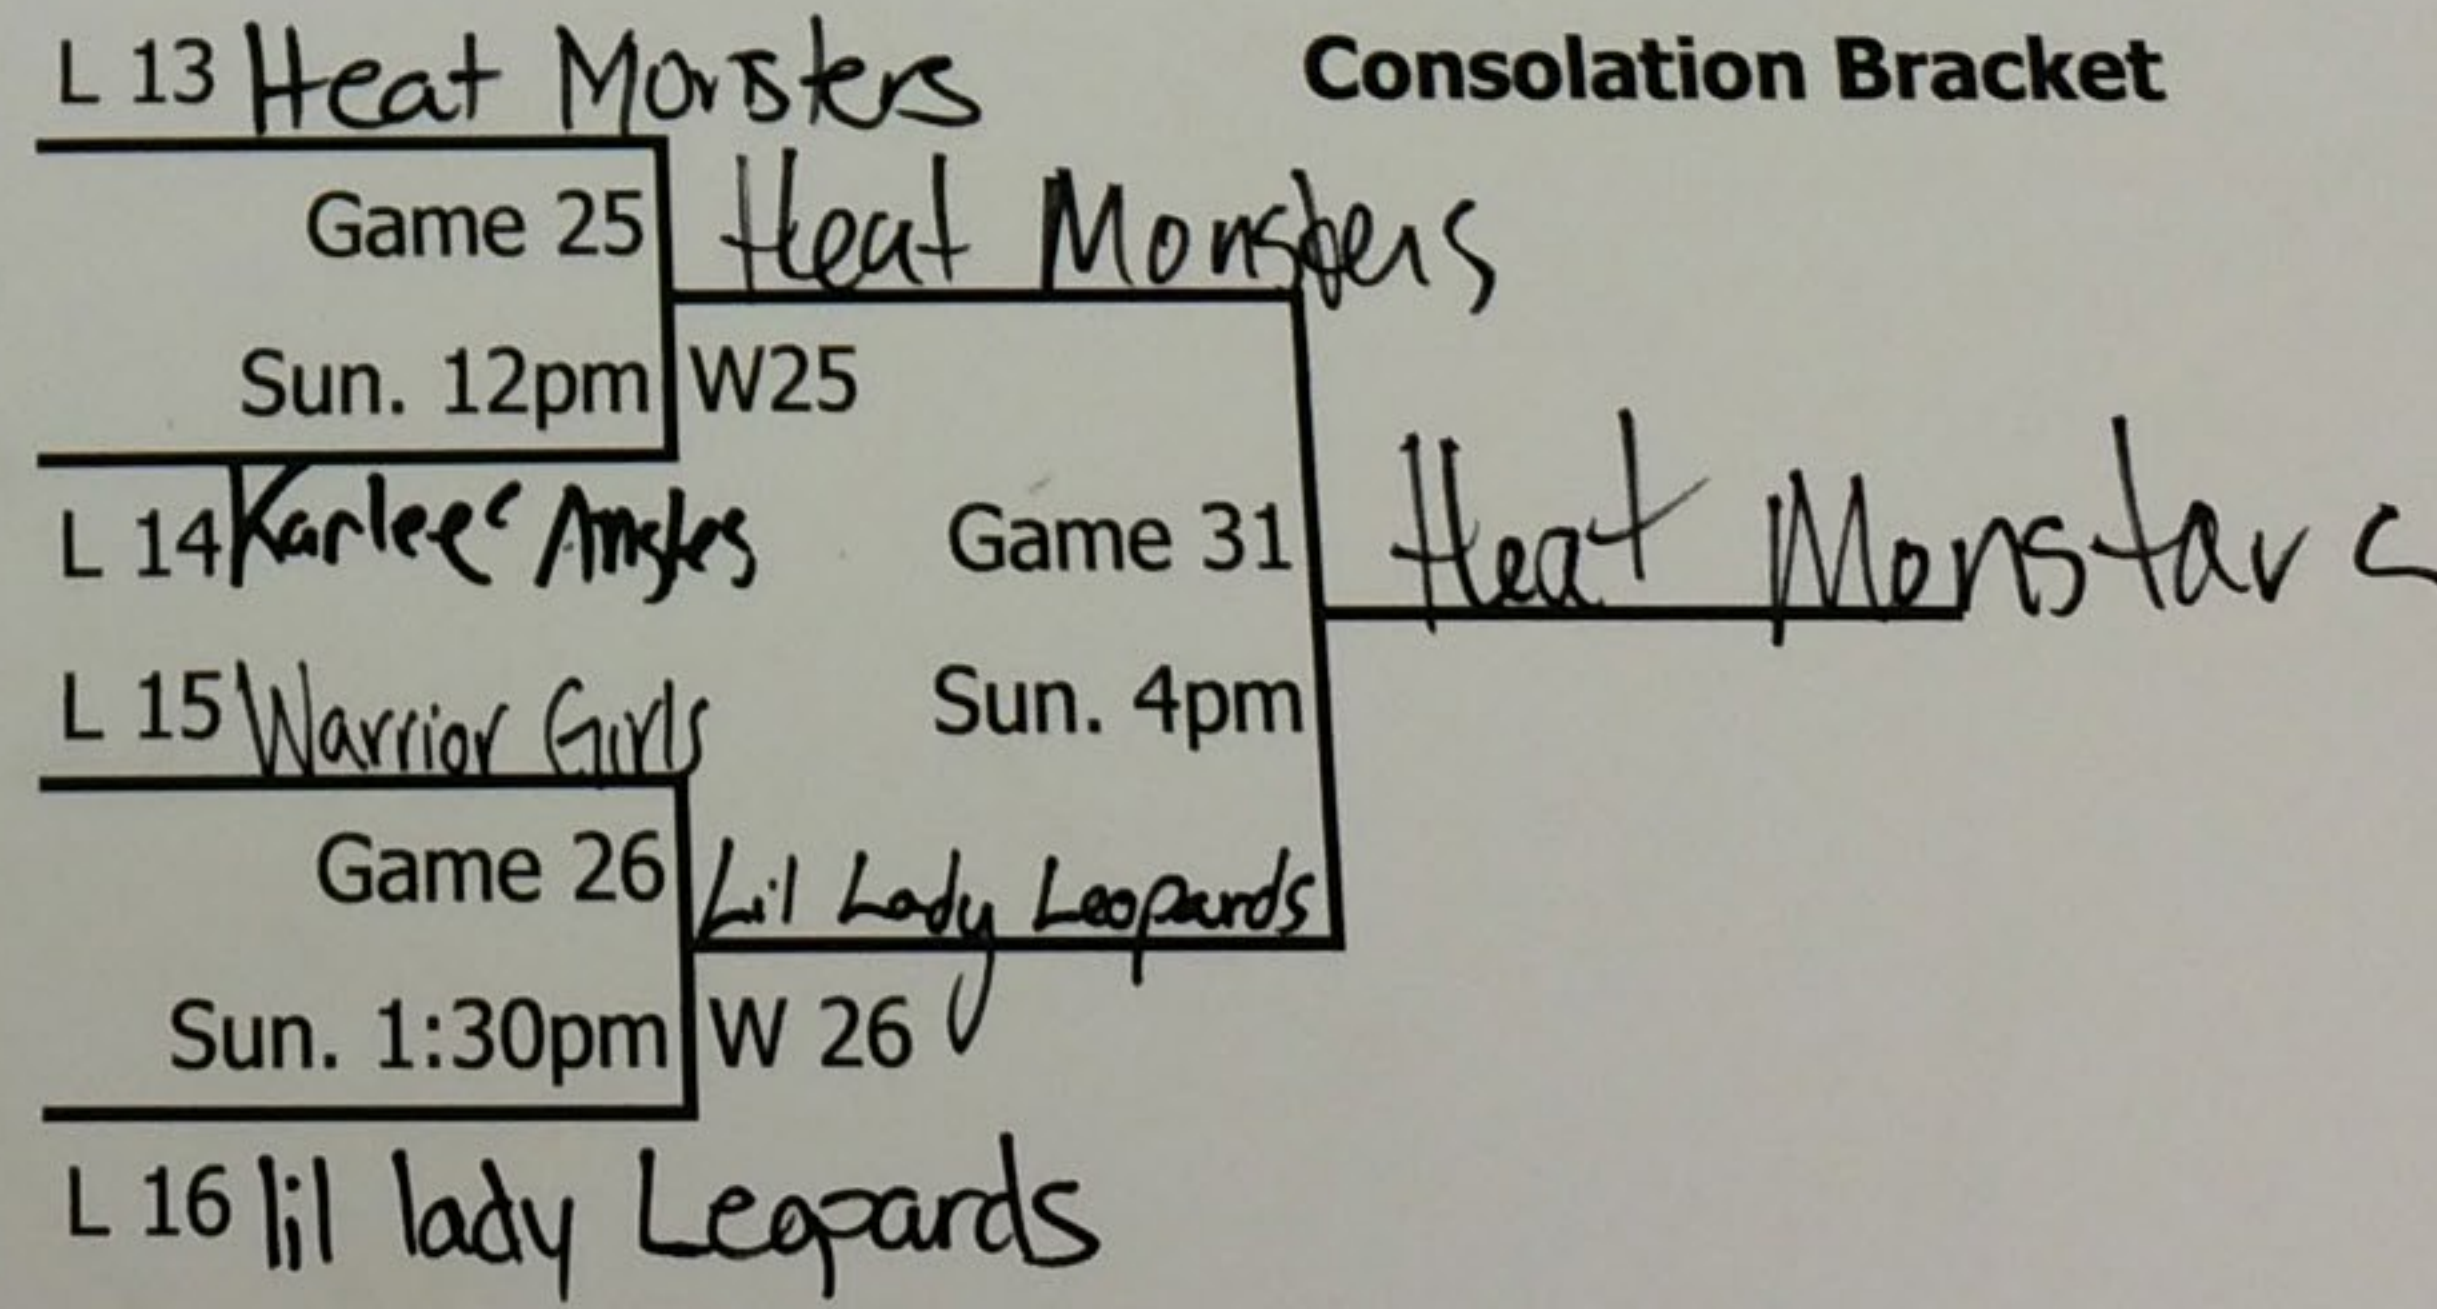 L 13 Heat Monsters
Consolation Bracket
Game 25
Heat Monsters
Sun. 12pm
W25
L 14 Karlee' Angles
Game 31
Heat Monstars
L 15 Warrior Girls
Sun. 4pm
Game 26
Lil Lady Leopards
Sun. 1:30pm
W 26
L 16 lil lady Leopards